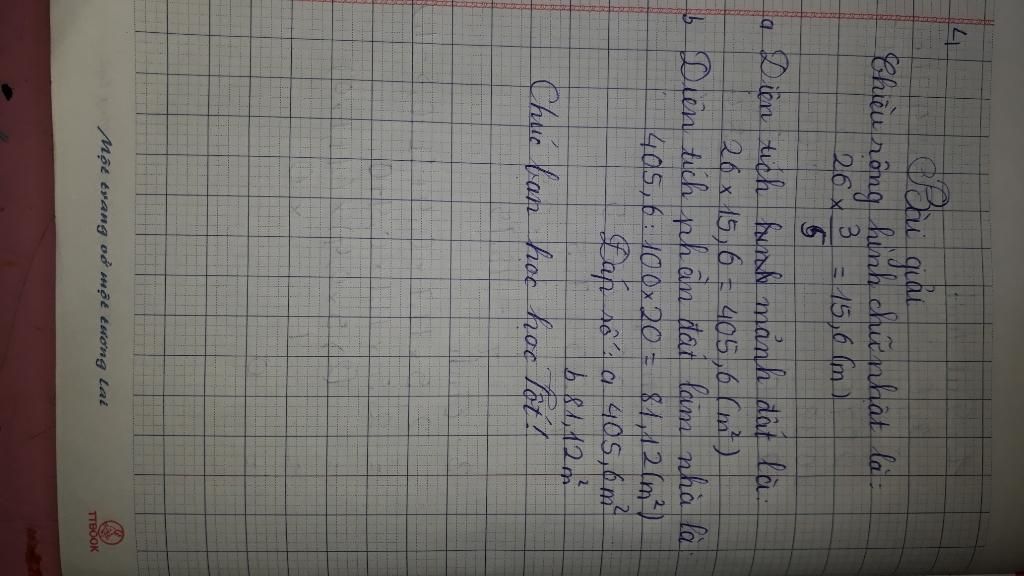 4
Bài giải
Chiều rộng hình chữ nhật là:
26 × 3/5 = 15,6 (m)
a Diện tích hình mảnh đất là:
26 × 15,6 = 405,6 (m²)
b Diện tích phần đất làm nhà là:
405,6 : 100 × 20 = 81,12 (m²)
Đáp số: a 405,6 m²
b 81,12 m²
Chúc bạn học học Tốt!
Một trang vở một tương lai
TTBOOK